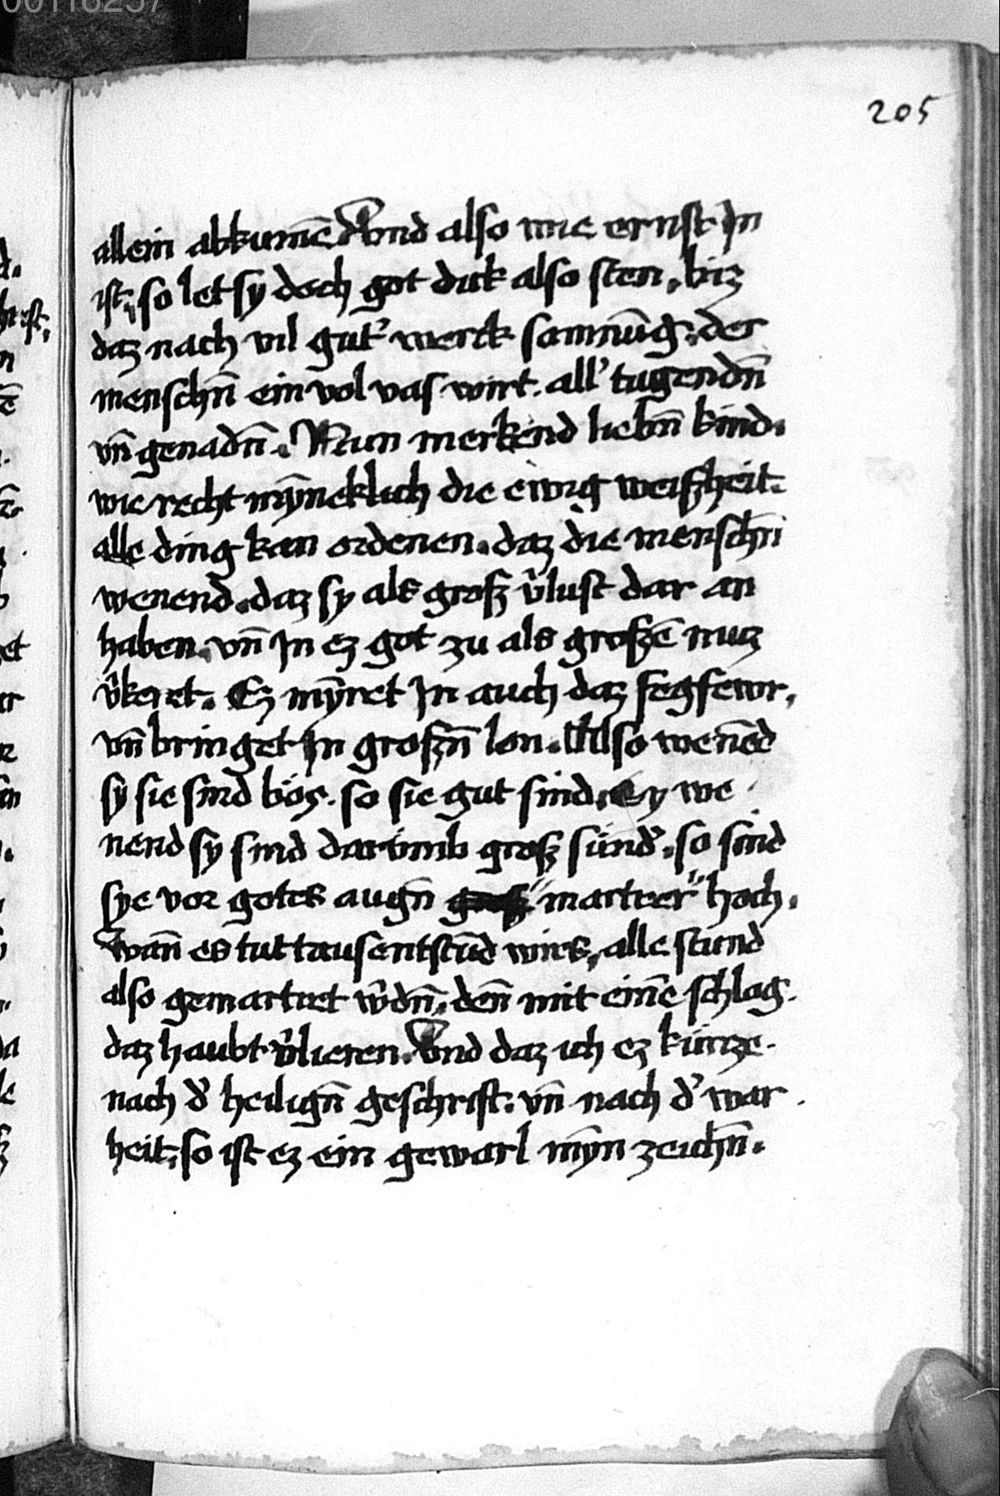 00118257
205
allein abkumē Vnd also wie ernst Jn
ist, so let sy doch got dick also sten, biz
daz nach vil gut' werck samnūg, der
menschn̄ ein vol vas wirt. all' tugendn̄
vn̄ genadn̄. Nun merkend liebn̄ kind.
wie recht mȳneklich die ewig weiszheit.
alle ding kan ordenen. daz die menschn̄
wenend. daz sy als grosz v'lust dar an
haben. vn̄ Jn ez got zu als groszē nucz
v'keret. Ez mȳret Jn auch daz fegfewr,
vn̄ bringet Jn groszn̄ lon. Also wenēd
sy sie sind böz. so sie gut sind. Sy we
nend sy sind darūmb grosz sünd'. so sind
sye vor gotes augn̄ martrer hoch.
Wan̄ es tut tausentstūd wirs, alle stund
also gemartret w'dn̄. den̄ mit einē schlag.
daz haubt v'lieren. Vnd daz ich ez kürtze.
nach d' heilign̄ geschrift. vn̄ nach d' war
heit, so ist ez ein gewarl mȳn zeichn̄.